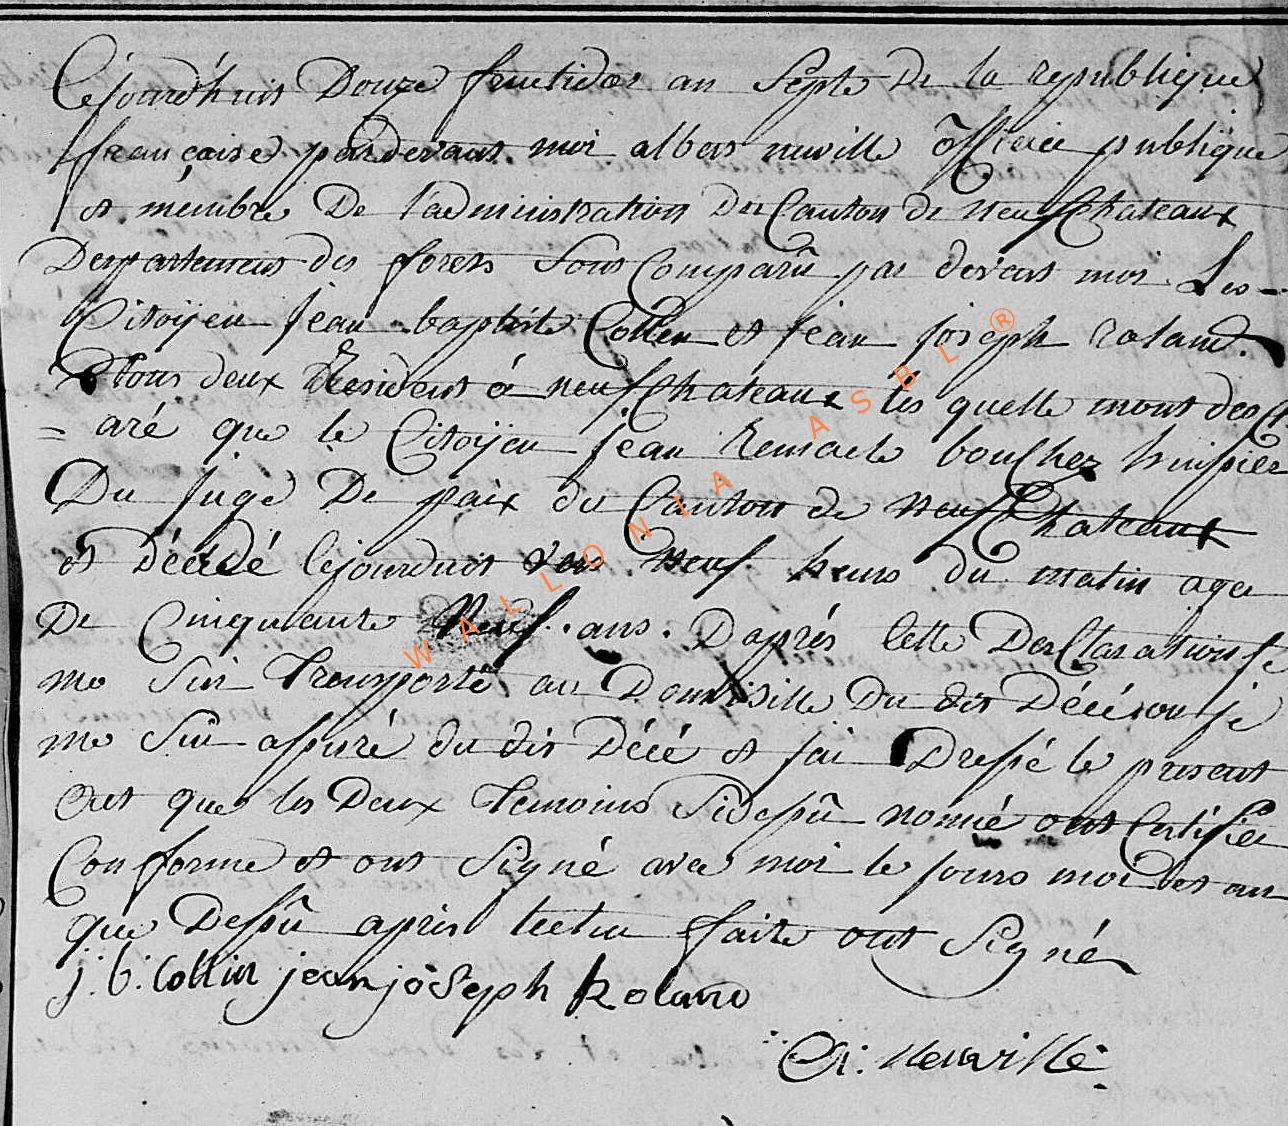 Cejourd'huis Douze fructidor an Septe De la republique
françaisse pardevans moi albers neuville officiée publique
et membre De l'administration Du Canton de neufChateaux
Departemens des forets sons Comparû par devans moi Les
Citoÿen jean baptiste Collin et jean joseph roland
tous deux Residens à neufChateaux les quelle mons decl
= aré que le Citoÿen jean Remacle bouChez huissiee
Du juge De paix du Canton de neufChateaux
et Décédé Cejourduis ver neuf heurs du matin agee
De Cinquante Neuf ans. Daprés Cette DesClarations je
me Sui Transporté au Domisille Du dis Décé ou je
me Sui assuré du dis Décé et jai Dressé le presens
act que les Deux temoins Sidessû nomé ons Certifiee
Conforme et ons Signé avec moi le jours mois et an
que Dessû apris lectur faite ons Signé
j: b: Collin jean joseph Roland
A: neuville
WALLONIA ASBL ®